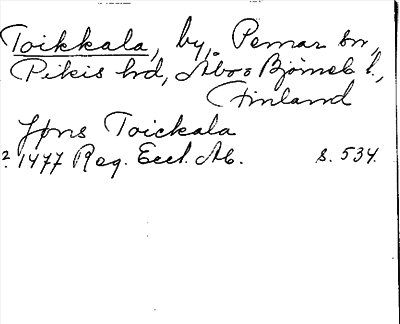 Toikkala, by, Pemar sn,
Pikis hd, Åbo o Björneb l.,
Finland
Jöns Toickala
2. 1477 Reg. Eccl. Ab. s. 534.